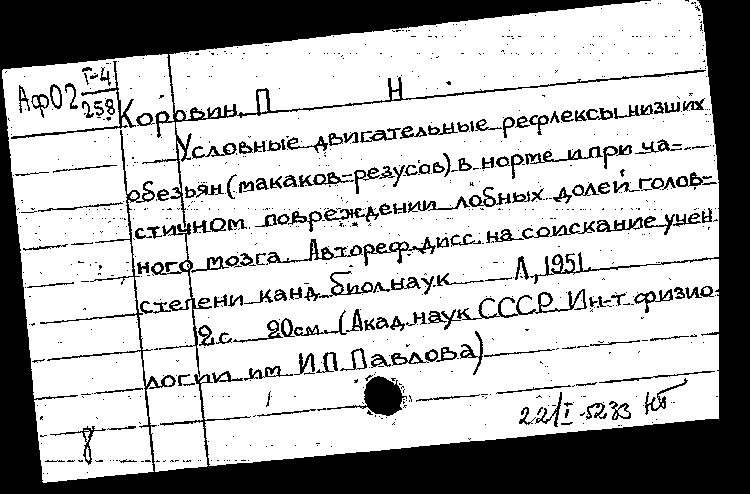 АфО2 I-4/258
Коровин, П Н.
Условные двигательные рефлексы низших
обезьян (макаков-резусов) в норме и при ча-
стичном повреждении лобных долей голов-
ного мозга. Автореф. дисс. на соискание учен
степени канд. биол. наук Л, 1951.
12 с. 20см. (Акад. наук СССР. Ин-т физио-
логии им И.П. Павлова)
22/I-5233
8